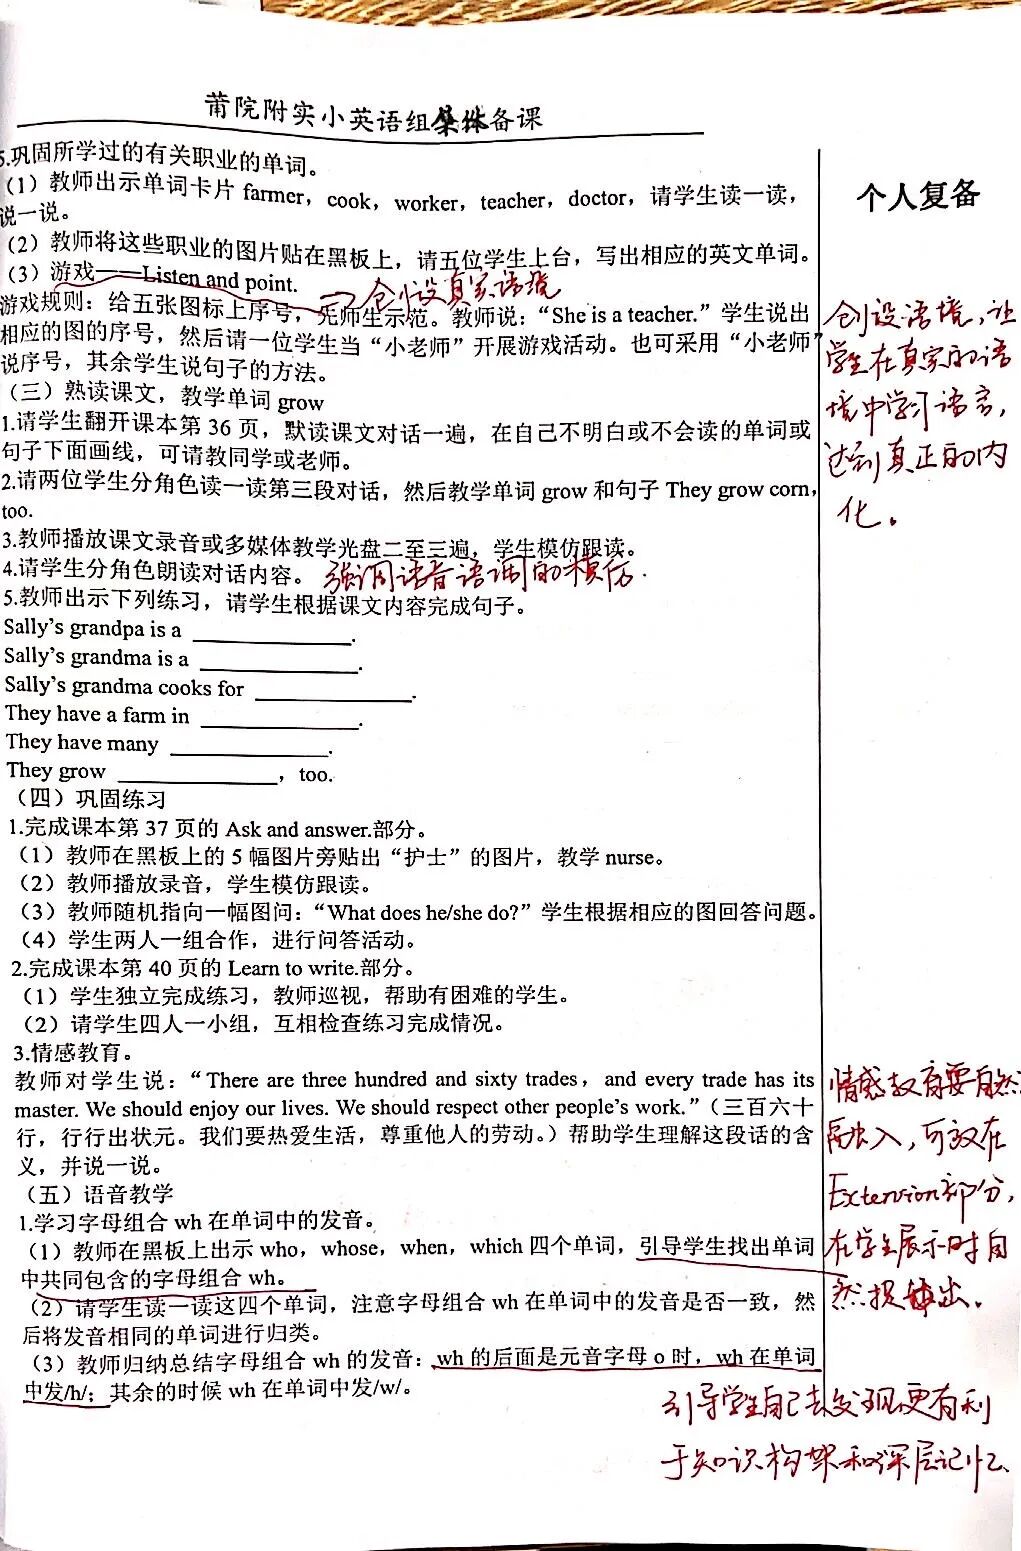 莆院附实小英语组集体备课
5.巩固所学过的有关职业的单词。
（1）教师出示单词卡片 farmer，cook，worker，teacher，doctor，请学生读一读，
说一说。
（2）教师将这些职业的图片贴在黑板上，请五位学生上台，写出相应的英文单词。
（3）游戏——Listen and point.
→创设真实语境
游戏规则：给五张图标上序号，先师生示范。教师说：“She is a teacher.”学生说出
相应的图的序号，然后请一位学生当“小老师”开展游戏活动。也可采用“小老师”
说序号，其余学生说句子的方法。
（三）熟读课文，教学单词 grow
1.请学生翻开课本第 36 页，默读课文对话一遍，在自己不明白或不会读的单词或
句子下面画线，可请教同学或老师。
2.请两位学生分角色读一读第三段对话，然后教学单词 grow 和句子 They grow corn,
too.
3.教师播放课文录音或多媒体教学光盘二至三遍，学生模仿跟读。
4.请学生分角色朗读对话内容。 强调语音语调的模仿.
5.教师出示下列练习，请学生根据课文内容完成句子。
Sally’s grandpa is a ____________.
Sally’s grandma is a ____________.
Sally’s grandma cooks for ____________.
They have a farm in ____________.
They have many ____________.
They grow ____________，too.
（四）巩固练习
1.完成课本第 37 页的 Ask and answer.部分。
（1）教师在黑板上的 5 幅图片旁贴出“护士”的图片，教学 nurse。
（2）教师播放录音，学生模仿跟读。
（3）教师随机指向一幅图问：“What does he/she do?”学生根据相应的图回答问题。
（4）学生两人一组合作，进行问答活动。
2.完成课本第 40 页的 Learn to write.部分。
（1）学生独立完成练习，教师巡视，帮助有困难的学生。
（2）请学生四人一小组，互相检查练习完成情况。
3.情感教育。
教师对学生说：“There are three hundred and sixty trades，and every trade has its
master. We should enjoy our lives. We should respect other people’s work.”（三百六十
行，行行出状元。我们要热爱生活，尊重他人的劳动。）帮助学生理解这段话的含
义，并说一说。
（五）语音教学
1.学习字母组合 wh 在单词中的发音。
（1）教师在黑板上出示 who，whose，when，which 四个单词，引导学生找出单词
中共同包含的字母组合 wh。
（2）请学生读一读这四个单词，注意字母组合 wh 在单词中的发音是否一致，然
后将发音相同的单词进行归类。
（3）教师归纳总结字母组合 wh 的发音：wh 的后面是元音字母 o 时，wh 在单词
中发/h/；其余的时候 wh 在单词中发/w/。
个人复备
创设语境，让
学生在真实的语
境中学习语言，
达到真正的内
化。
情感教育要自然
融入，可放在
Extension部分，
在学生展示时自
然提出.
引导学生自己去发现，更有利
于知识构架和深层记忆